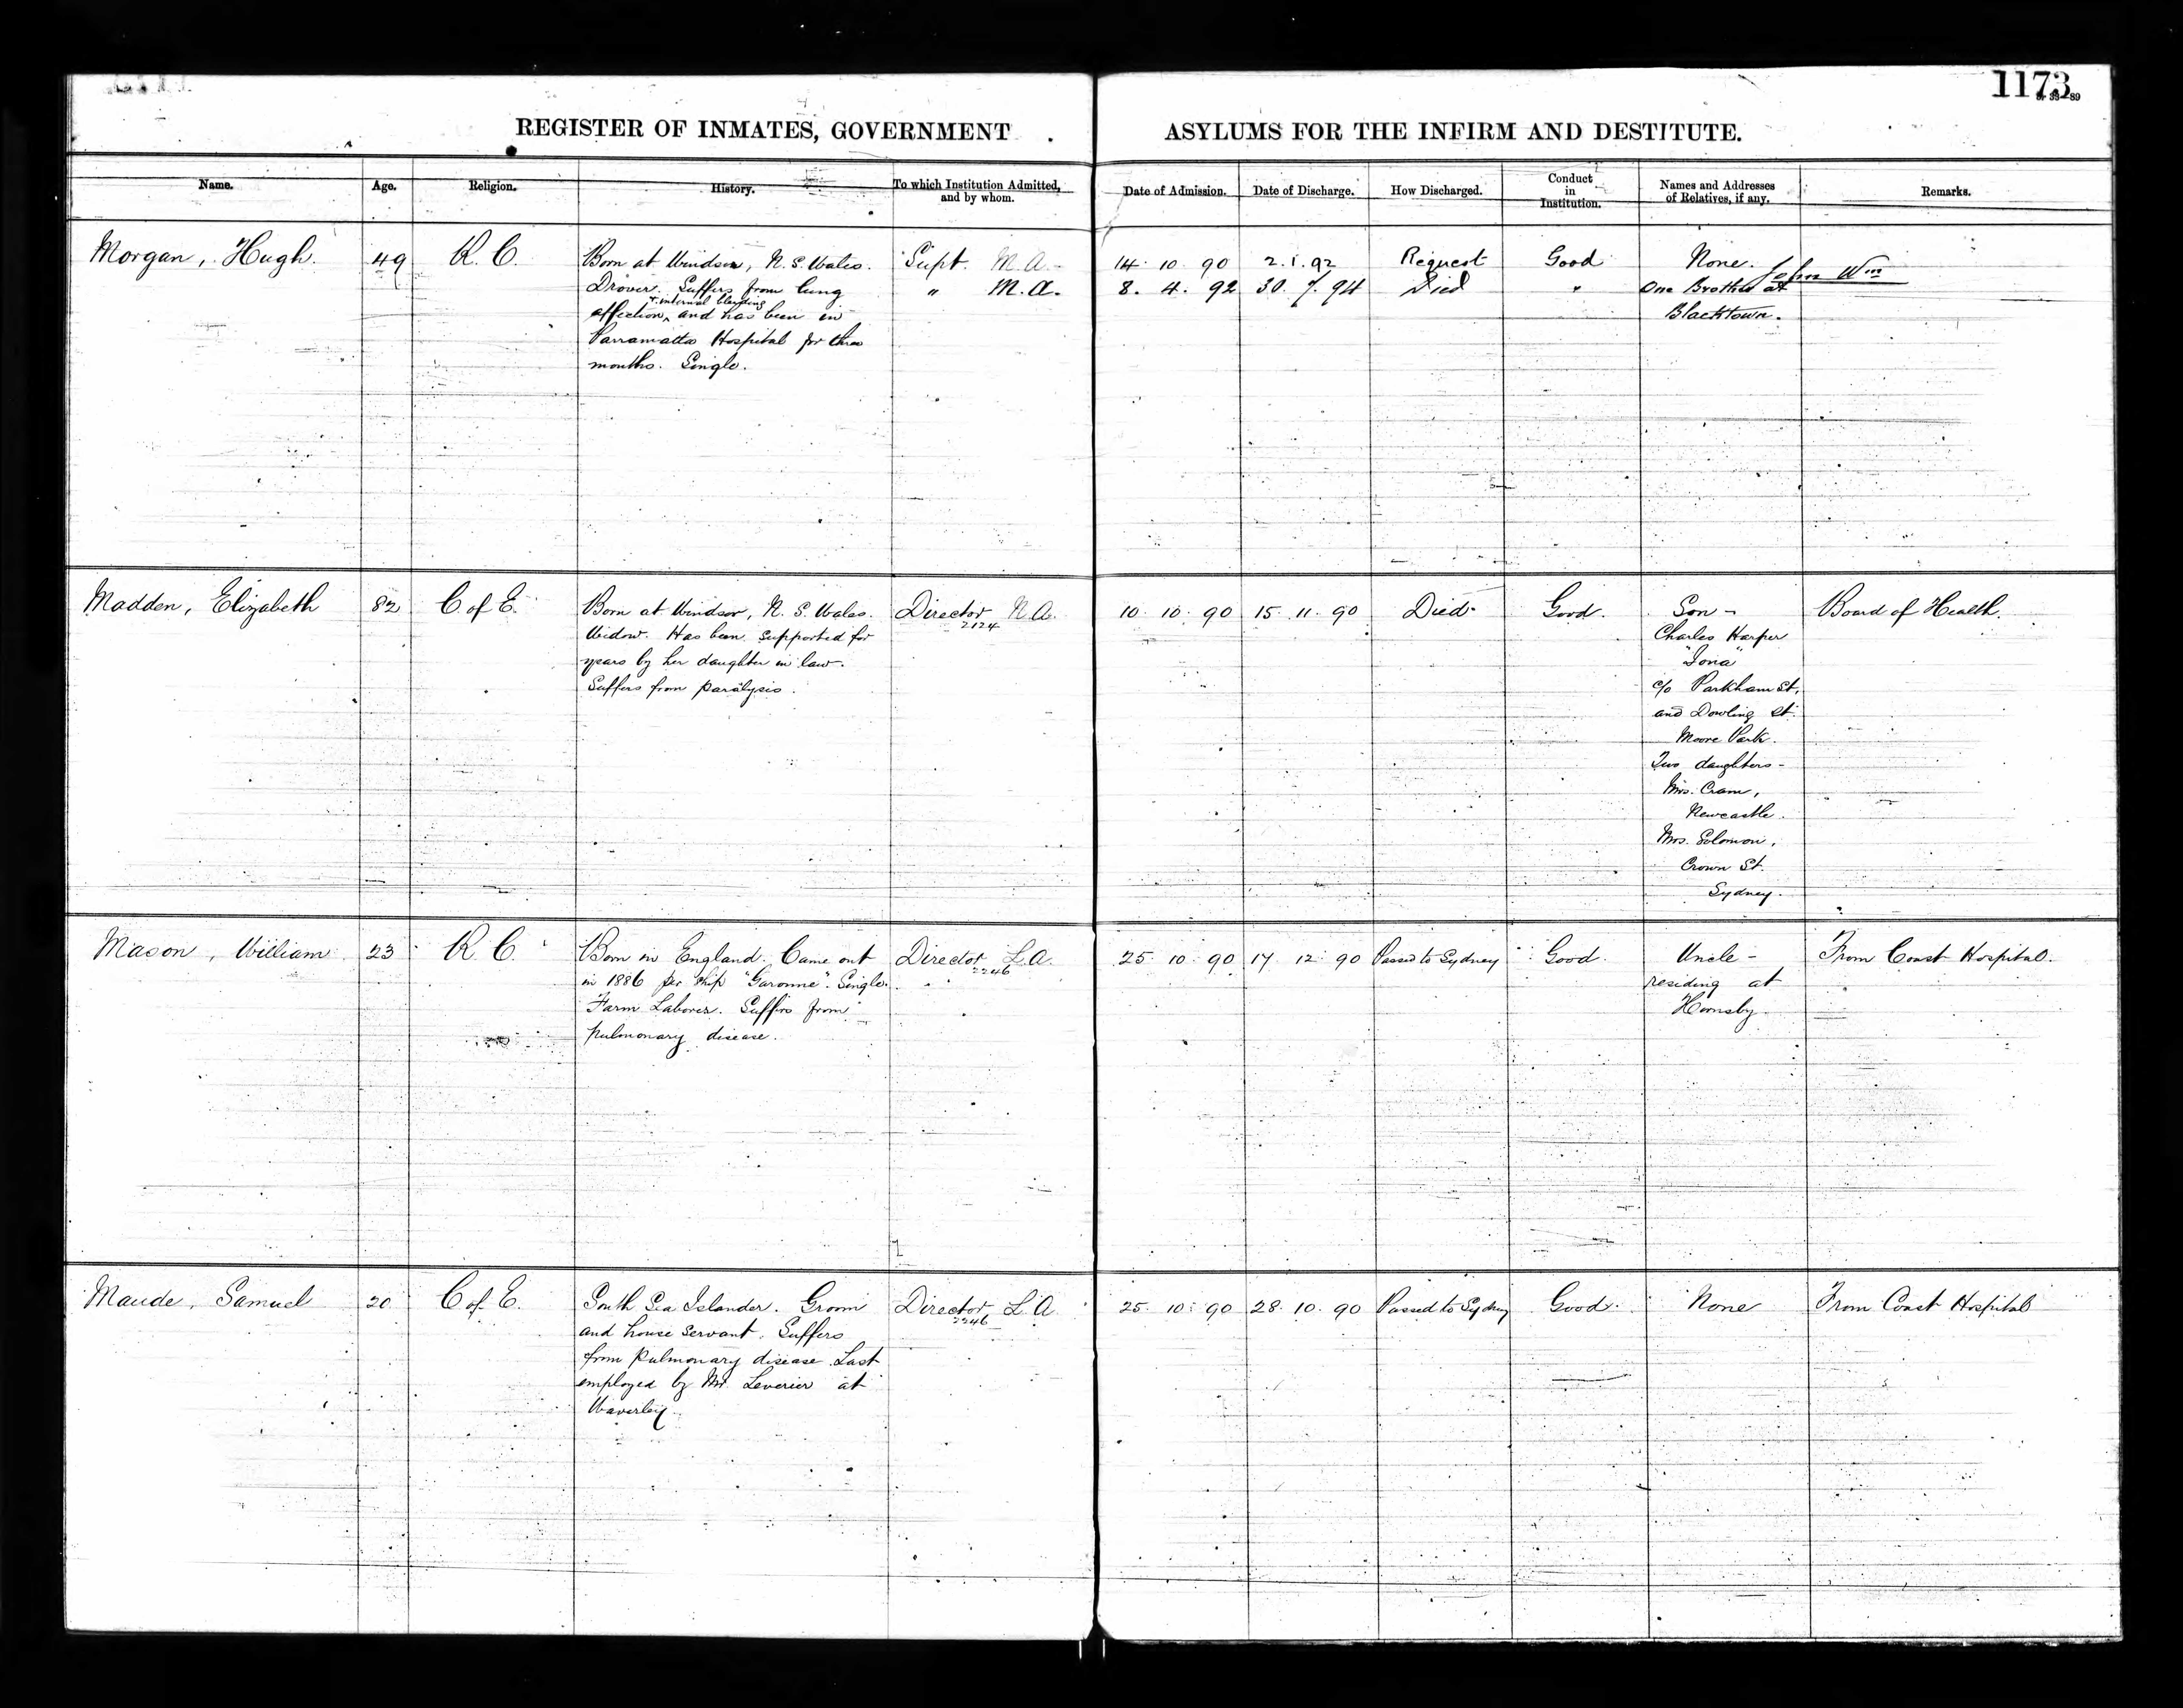 1173
REGISTER OF INMATES, GOVERNMENT ASYLUMS FOR THE INFIRM AND DESTITUTE.
Name. Age. Religion. History. To which Institution Admitted, and by whom. Date of Admission. Date of Discharge. How Discharged. Conduct in Institution. Names and Addresses of Relatives, if any. Remarks.
Morgan, Hugh. 49 R. C. Born at Windsor, N. S. Wales. Supt. M. A. 14. 10. 90 2. 1. 92 Request Good None.
Drover. Suffers from lung " M. A. 8. 4. 92 30. 7. 94 Died " One Brother John Wm at
+ internal bleeding
affection, and has been in Blacktown.
Parramatta Hospital for three
months. Single.
Madden, Elizabeth 82 C of E. Born at Windsor, N. S. Wales. Director N. A. 10. 10. 90 15. 11. 90 Died Good. Son - Board of Health.
2124
Widow. Has been supported for Charles Harper
years by her daughter in law. "Iona"
Suffers from paralysis. c/o Parkham St,
and Dowling St.
Moore Park.
Two daughters -
Mrs. Cram,
Newcastle.
Mrs. Solomon,
Crown St.
Sydney.
Mason, William 23 R C. Born in England. Came out Director L. A. 25. 10. 90 17. 12. 90 Passed to Sydney Good. Uncle - From Coast Hospital.
2246
in 1886 per ship "Garonne". Single. residing at
Farm Laborer. Suffers from Hornsby.
pulmonary disease.
Maude, Samuel 20 C of E. South Sea Islander. Groom Director L. A. 25. 10. 90 28. 10. 90 Passed to Sydney Good. None From Coast Hospital
2246
and house servant. Suffers
from pulmonary disease. Last
employed by Mr. Leverier at
Waverley.